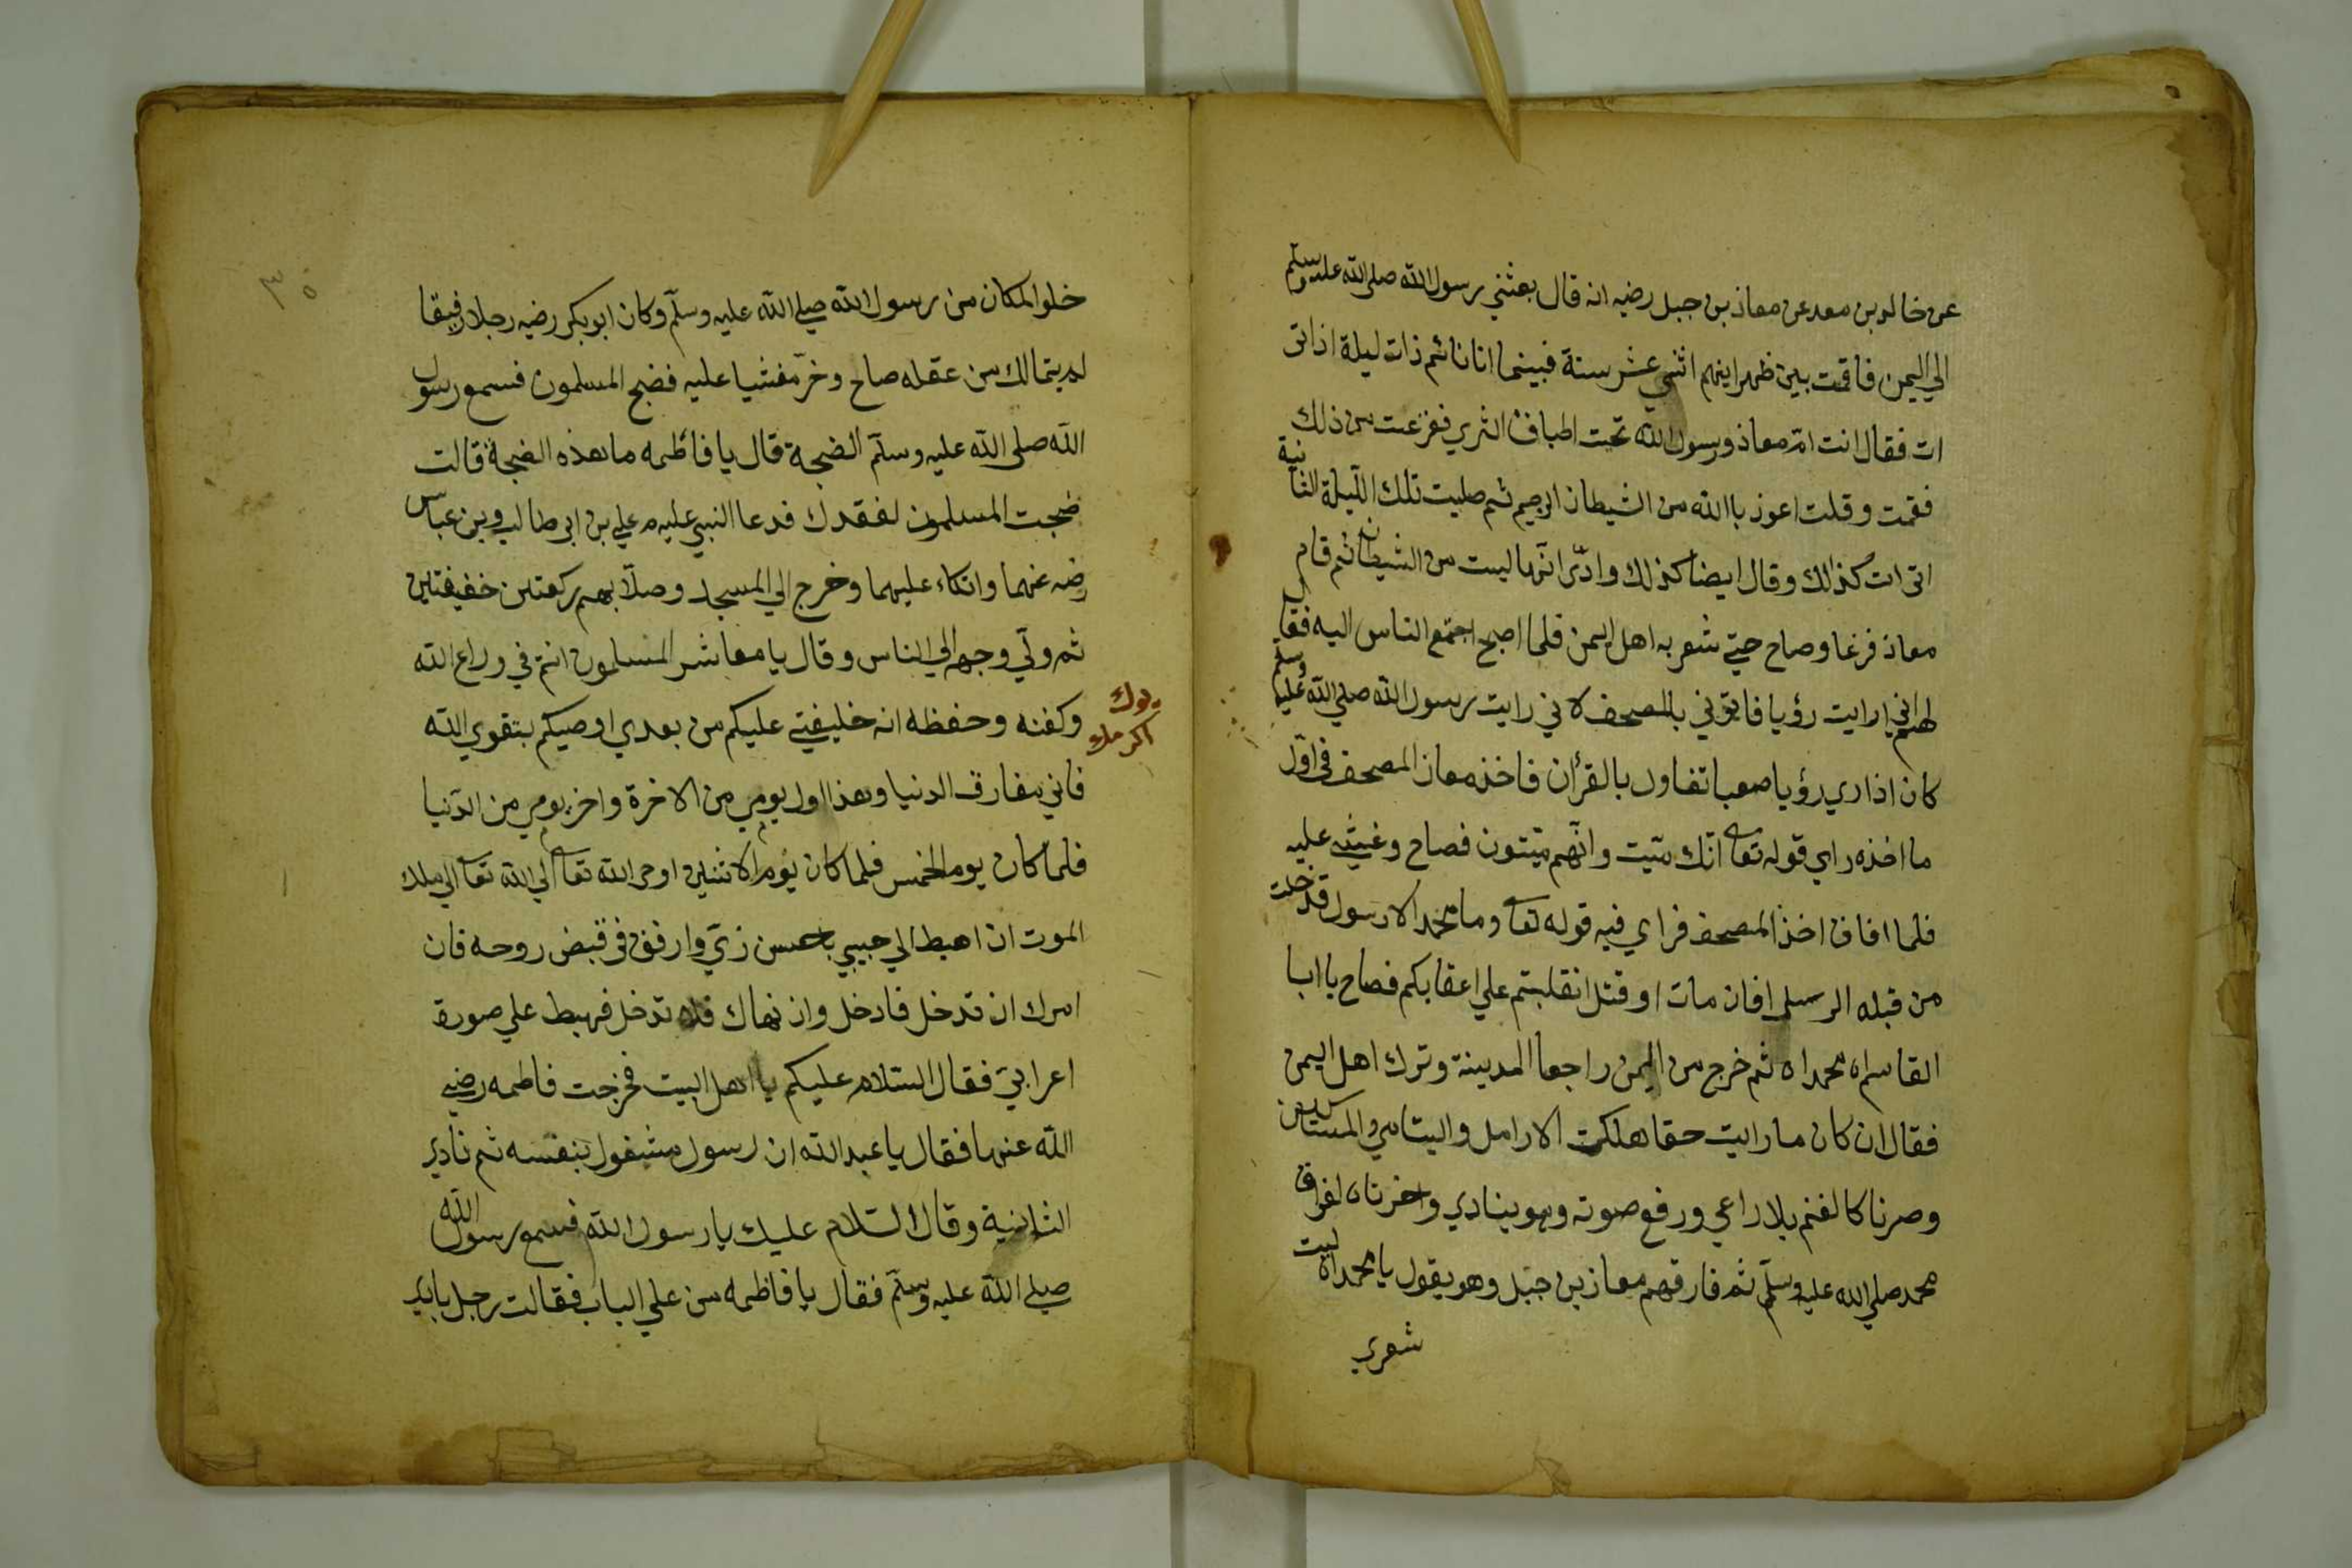 عن خالد بن معد عن معاذ بن جبل رضيه انه قال بعثني رسول الله صلى الله عليه وسلم
الي اليمن فاقمت بين ظهرانيهم اثني عشر سنة فبينما انا نائم ذات ليلة اذ اتى
ات فقال انت ام معاذ ورسول الله تحت اطباق الثري ففزعت من ذلك
فقمت وقلت اعوذ باالله من الشيطان الرجيم ثم صليت تلك الليلة الثانية
اتى ات كذالك وقال ايضا كذلك وادّى انها ليست من الشيطان ثم قام
معاذ فزعا وصاح حتي شعر به اهل اليمن فلما اصبح اجتمع الناس اليه فقال
لهم اني رايت رؤيا فايتوني بالمصحف لاني رايت رسول الله صلى الله عليه وسلم
كان اذا ري رؤيا صعبا تفاول بالقرأن فاخذ معاذ المصحف في اول
ما اخذه راي قوله تعا انك ميت وانهم ميتون فصاح وغشي عليه
فلما افاق اخذ المصحف فراي فيه قوله تعا وما محمد الا رسول قد خلت
من قبله الرسل افان مات او قتل انقلبتم علي اعقابكم فصاح يا ابا
القاسماه محمداه ثم خرج من اليمن راجعا المدينة وترك اهل اليمن
فقال ان كان ما رايت حقا هلكت الارامل واليتامي والمساكين
وصرنا كالغنم بلا راعي ورفع صوته وهو ينادي واحزناه لفراق
محمد صلي الله عليه وسلم ثم فارقهم معاذ بن جبل وهو يقول يا محمداه ليت
شعري
٣٥
خلو المكان من رسول الله صلي الله عليه وسلم وكان ابو بكر رضيه رجلا رقيقا
لم يتمالك من عقله صاح وخر مغشيا عليه فضج المسلمون فسمع رسول
الله صلى الله عليه وسلم الضجة قال يا فاطمه ما هذه الضجة قالت
ضجت المسلمون لفقدك فدعا النبي عليه م علي بن ابي طالب وبن عباس
رضه عنهما واتكاء عليهما وخرج الي المسجد وصلا بهم ركعتين خفيفتين
ثم ولي وجهه الي الناس وقال يا معاشر المسلمون انتم في وداع الله
وكنفه وحفظه انه خليفتي عليكم من بعدي اوصيكم بتقوي الله
فاني مفارق الدنيا وهذا اول يومي من الاخرة واخر يومي من الدنيا
فلما كان يوم الخمس فلما كان يوم الاثنين اوحي الله تعا الي الله تعا الي ملك
الموت ان اهبط الي حبيبي باحسن زي وارفق في قبض روحه فان
امرك ان تدخل فادخل وان نهاك فلا تدخل فهبط علي صورة
اعرابي فقال السلام عليكم يا اهل البيت فخرجت فاطمه رضي
الله عنها فقال يا عبد الله ان رسول مشغول بنفسه ثم نادي
الثانية وقال السلام عليك يا رسول الله فسمع رسول الله
صلي الله عليه وسلم فقال يا فاطمه من علي الباب فقالت رجل ينادي